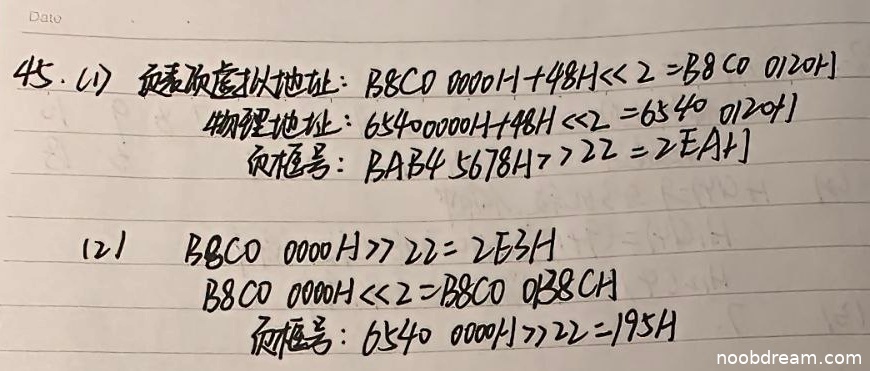 Date
45. (1) 页表项虚拟地址: B8C0 0000H+48H<<2=B8C0 0120H
物理地址: 65400000H+48H<<2=6540 0120H
页框号: BAB4 5678H>>22=2EAH
(2) B8C0 0000H>>22=2E3H
B8C0 0000H<<2=B8C0 0B8CH
页框号: 6540 0000H>>22=195H
noobdream.com